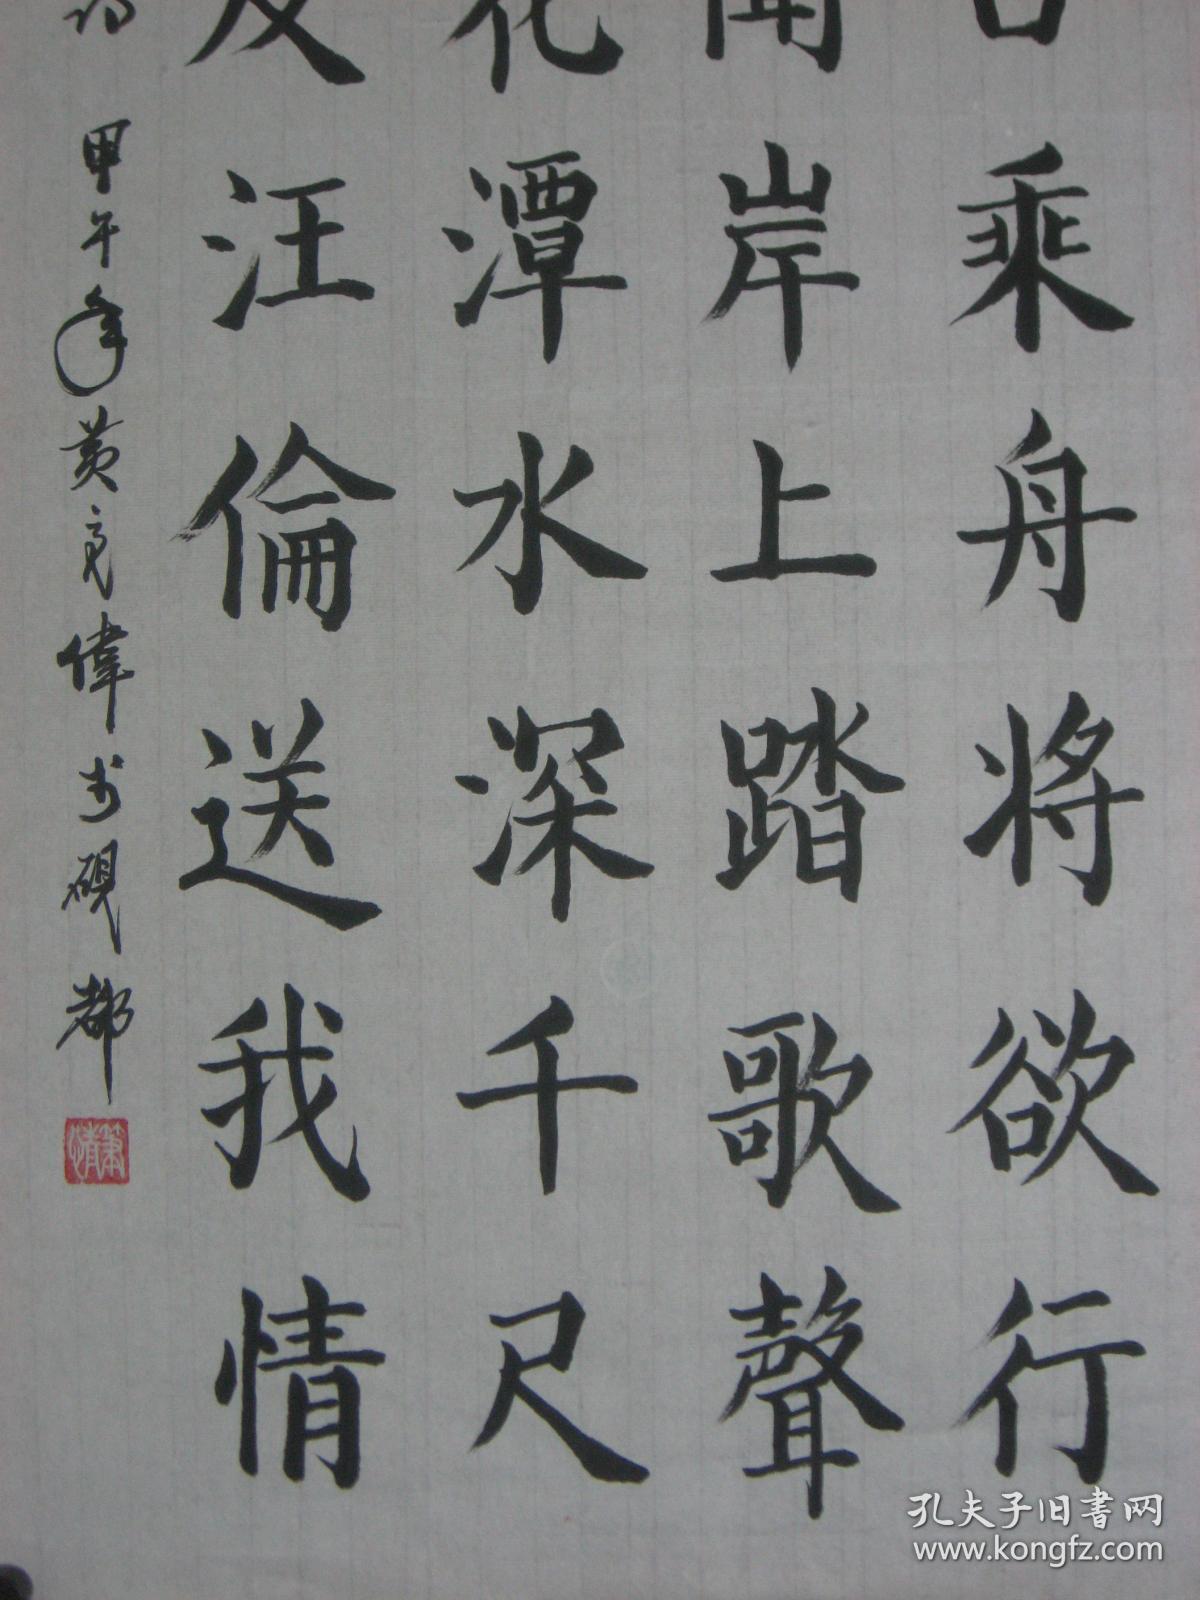 白乘舟將欲行
聞岸上踏歌聲
花潭水深千尺
及汪倫送我情
詩 甲午年黃亮偉书硯都
孔夫子旧書网
www.kongfz.com